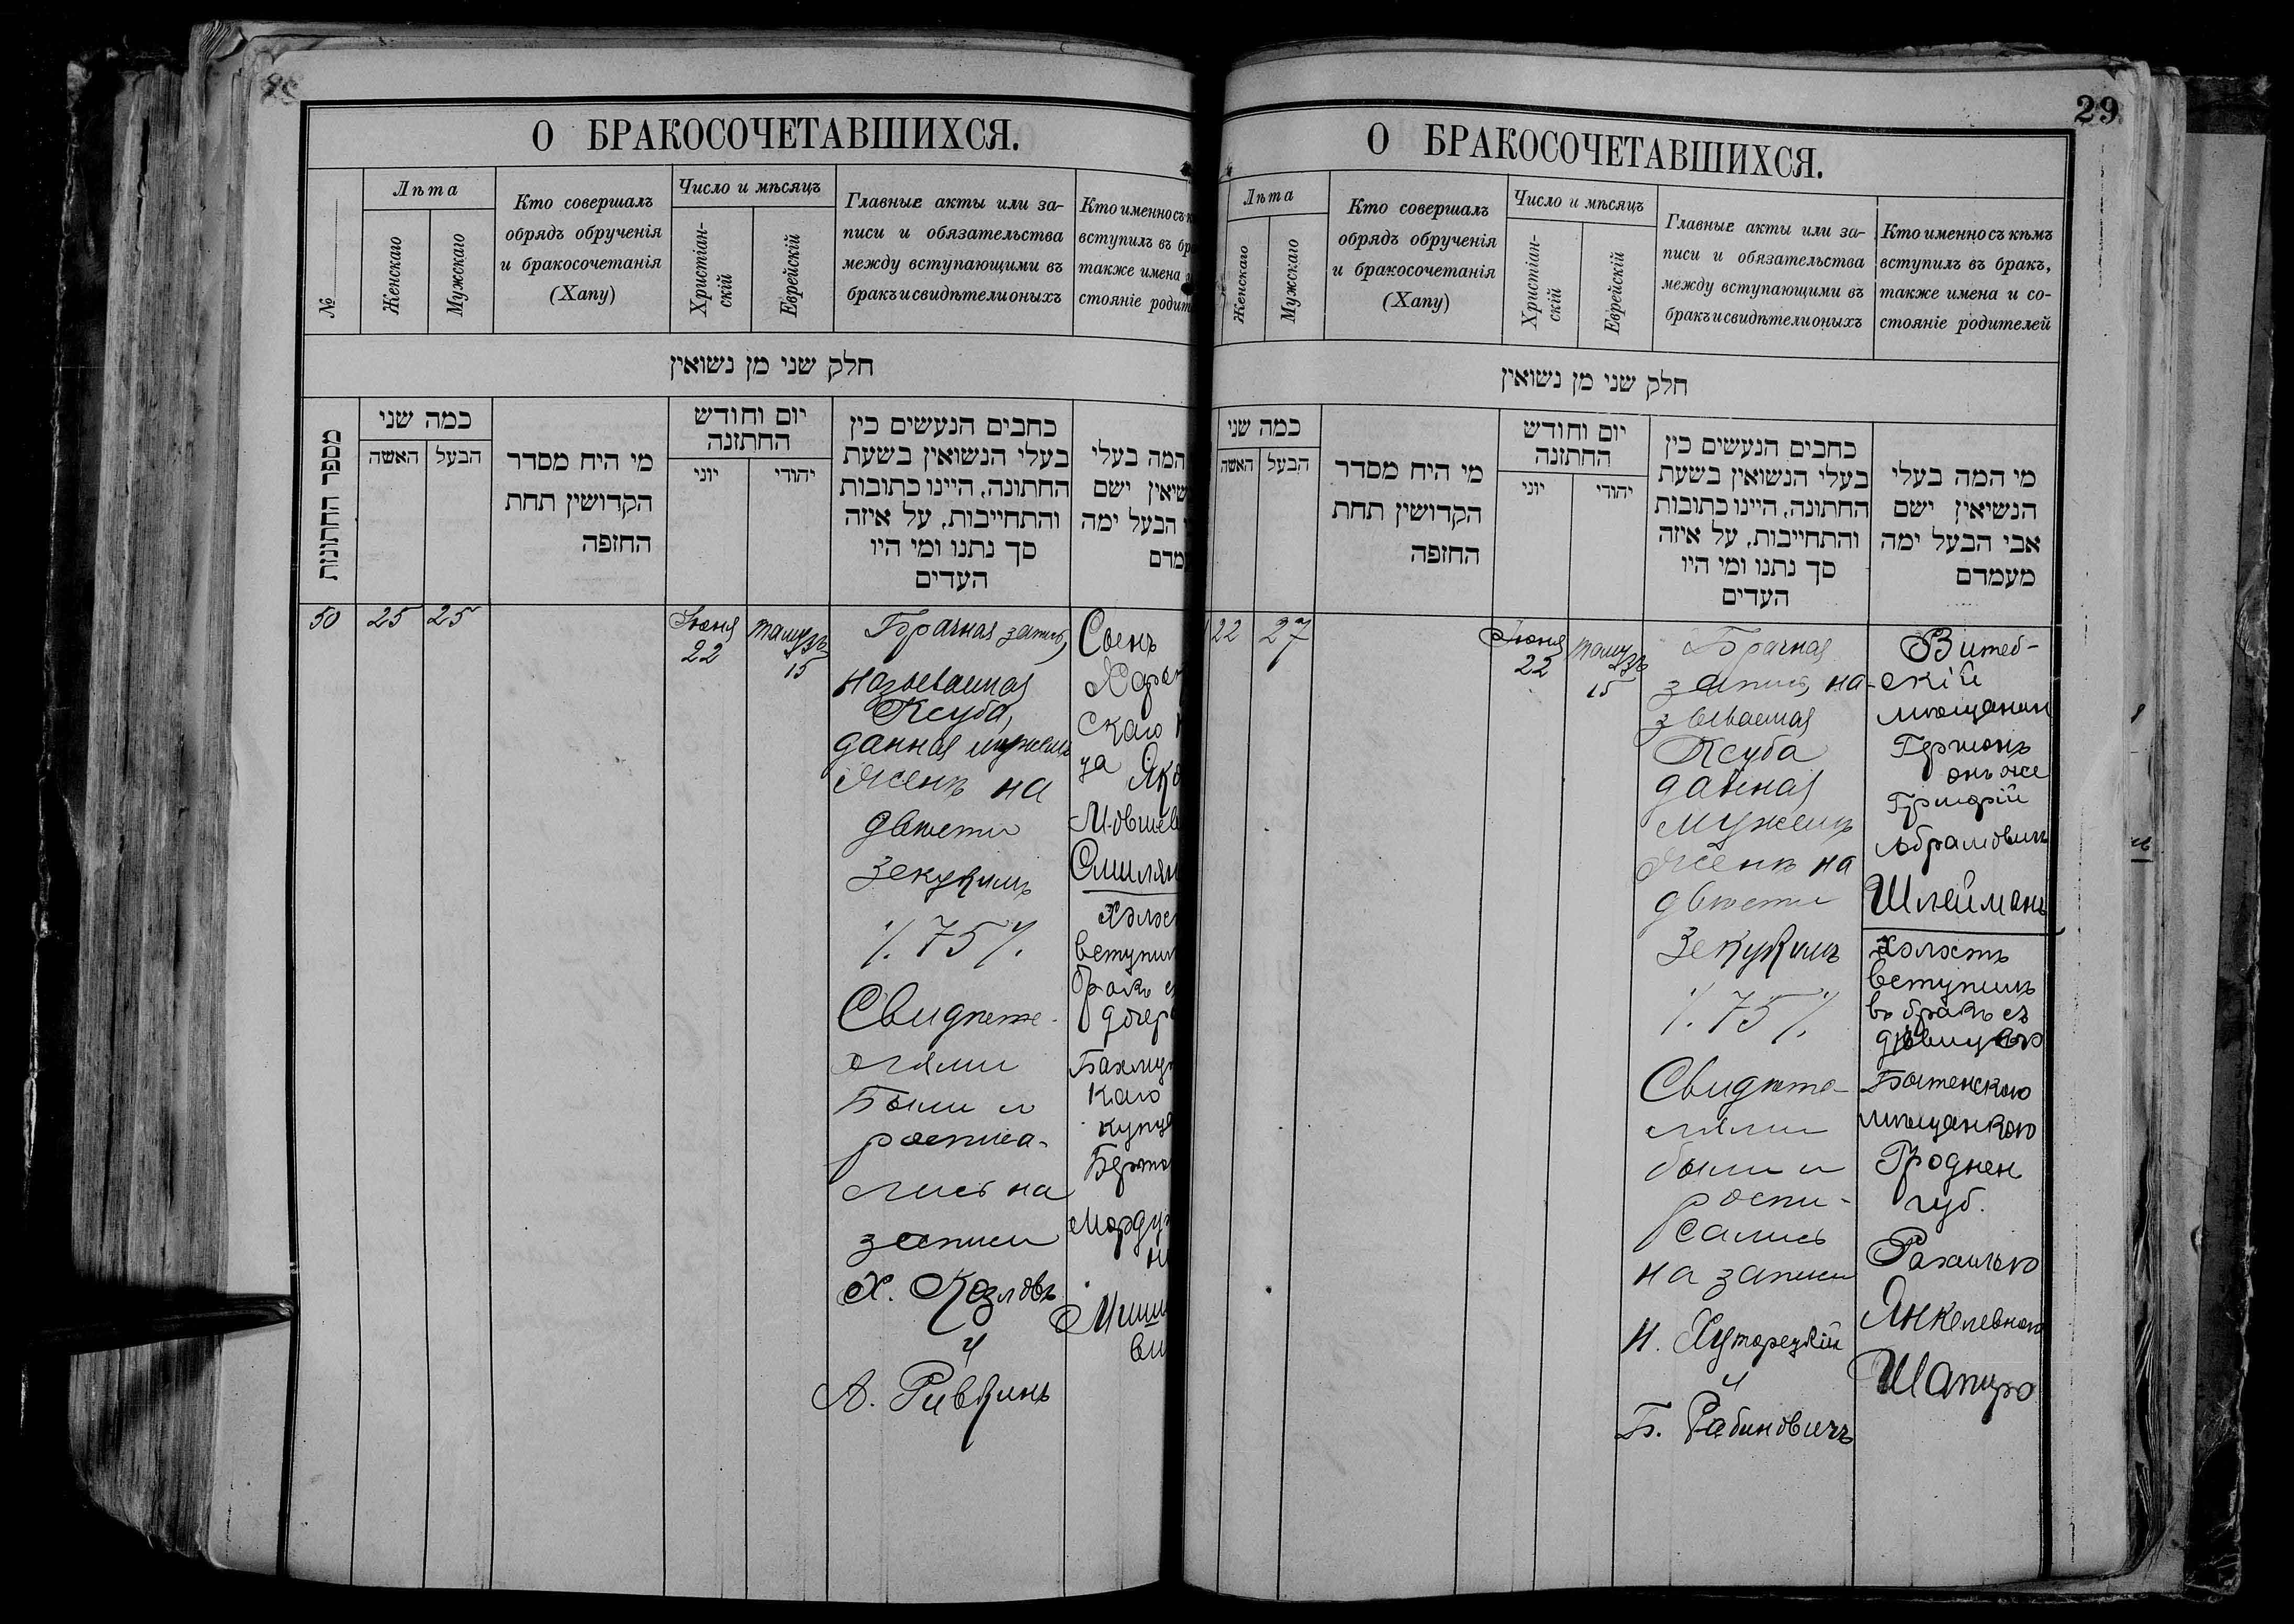 О БРАКОСОЧЕТАВШИХСЯ.
№
Лѣта
Женскаго
Мужскаго
Кто совершалъ
обрядъ обрученія
и бракосочетанія
(Хапу)
Число и мѣсяцъ
Христіан-
скій
Еврейскій
Главные акты или за-
писи и обязательства
между вступающими въ
бракъ и свидѣтели оныхъ
Кто именно съ к
вступилъ въ бр
также имена и
стояніе родит
חלק שני מן נשואין
מספר החתונות
כמה שני
האשה
הבעל
מי היח מסדר
הקדושין תחת
החופה
יום וחודש
החתונה
יוני
יהודי
כחבים הנעשים כין
בעלי הנשואין בשעת
החתונה, היינו כתובות
והתחייבות, על איזה
סך נתנו ומי היו
העדים
המה בעלי
שיאין ישם
הבעל ימה
מדם
50
25
25
Іюня
22
Тамузъ
15
Брачная запись,
называемая
Ксуба,
данная мужемъ
женѣ на
двѣсти
Зекукимъ
٪ 75 ٪
Свидѣте-
лями
были и
росписа-
лись на
записи
Х. Козловъ
и
А. Ривкинъ
Соенъ
Харьк
скаго к
ца Яко
Мовшев
Смилян
холост
вступил
бракъ с
дочер
Бахмут
каго
купца
Берто
Морду
Миш
ви
29
О БРАКОСОЧЕТАВШИХСЯ.
Лѣта
Женскаго
Мужскаго
Кто совершалъ
обрядъ обрученія
и бракосочетанія
(Хапу)
Число и мѣсяцъ
Христіан-
скій
Еврейскій
Главные акты или за-
писи и обязательства
между вступающими въ
бракъ и свидѣтели оныхъ
Кто именно съ кѣмъ
вступилъ въ бракъ,
также имена и со-
стояніе родителей
חלק שני מן נשואין
כמה שני
האשה
הבעל
מי היח מסדר
הקדושין תחת
החופה
יום וחודש
החתונה
יוני
יהודי
כחבים הנעשים כין
בעלי הנשואין בשעת
החתונה, היינו כתובות
והתחייבות, על איזה
סך נתנו ומי היו
העדים
מי המה בעלי
הנשיאין ישם
אבי הבעל ימה
מעמדם
22
27
Іюня
22
Тамузъ
15
Брачная
запись, на-
зываемая
Ксуба
данная
мужемъ
женѣ на
двѣсти
Зекукимъ
٪ 75 ٪
Свидѣте-
лями
были и
роспи-
сались
на записи
И. Хуторецкій
и
Б. Рабиновичъ
Витеб-
скій
мѣщанин
Гершонъ
онъ же
Григорій
Абрамовичъ
Шлейманъ
холостъ
вступилъ
въ бракъ съ
дѣвицею
Бытенскою
мѣщанкою
Гроднен
губ.
Рахилью
Янкелевною
Шапиро